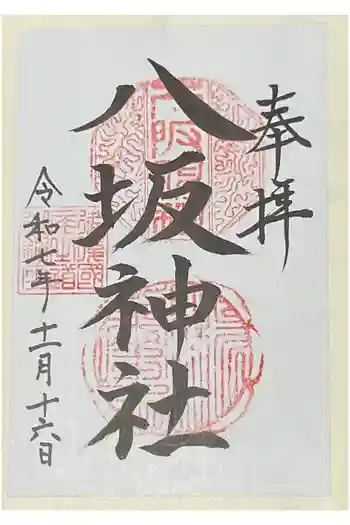 奉拝
八坂神社
令和七年十一月十六日